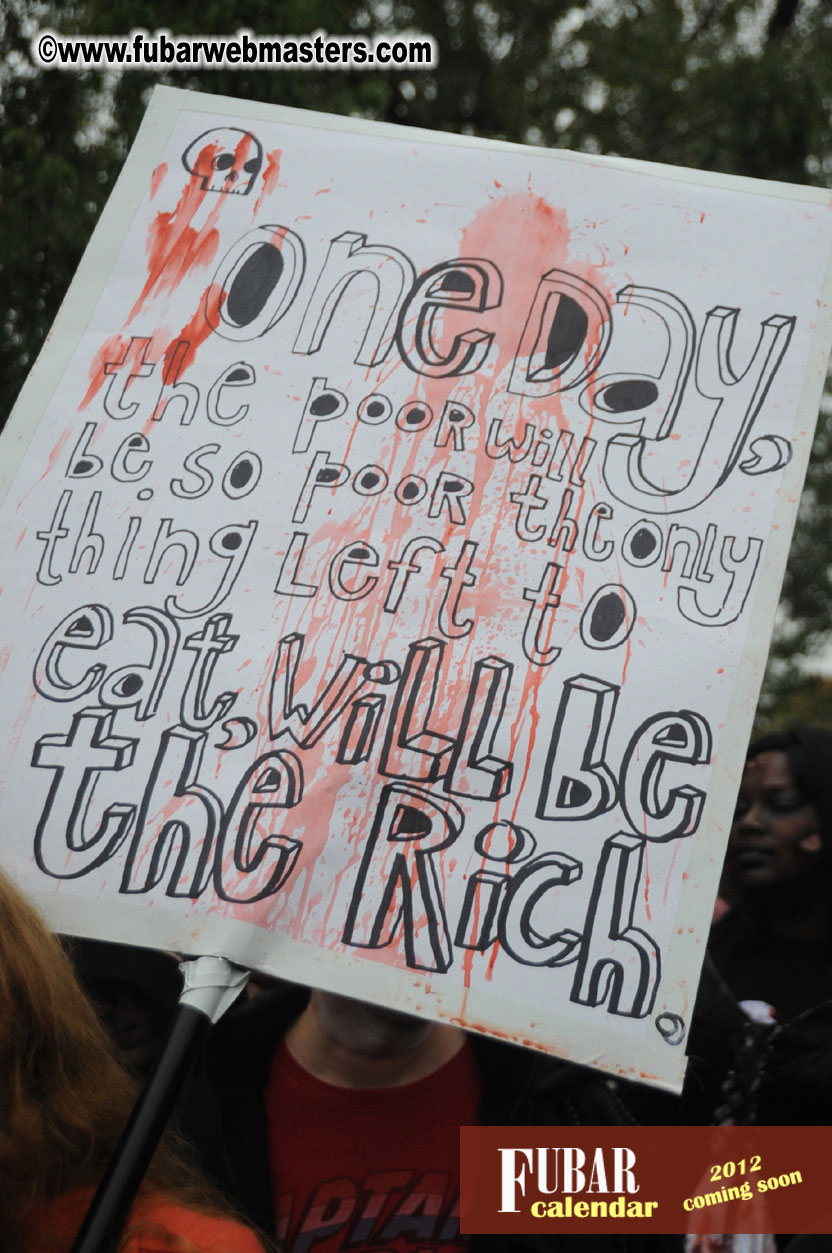 ©www.fubarwebmasters.com
One Day,
the pooR will
be so pooR the only
thing Left to
eat, Will be
the Rich.
CAPTA
FUBAR
calendar
2012
coming soon